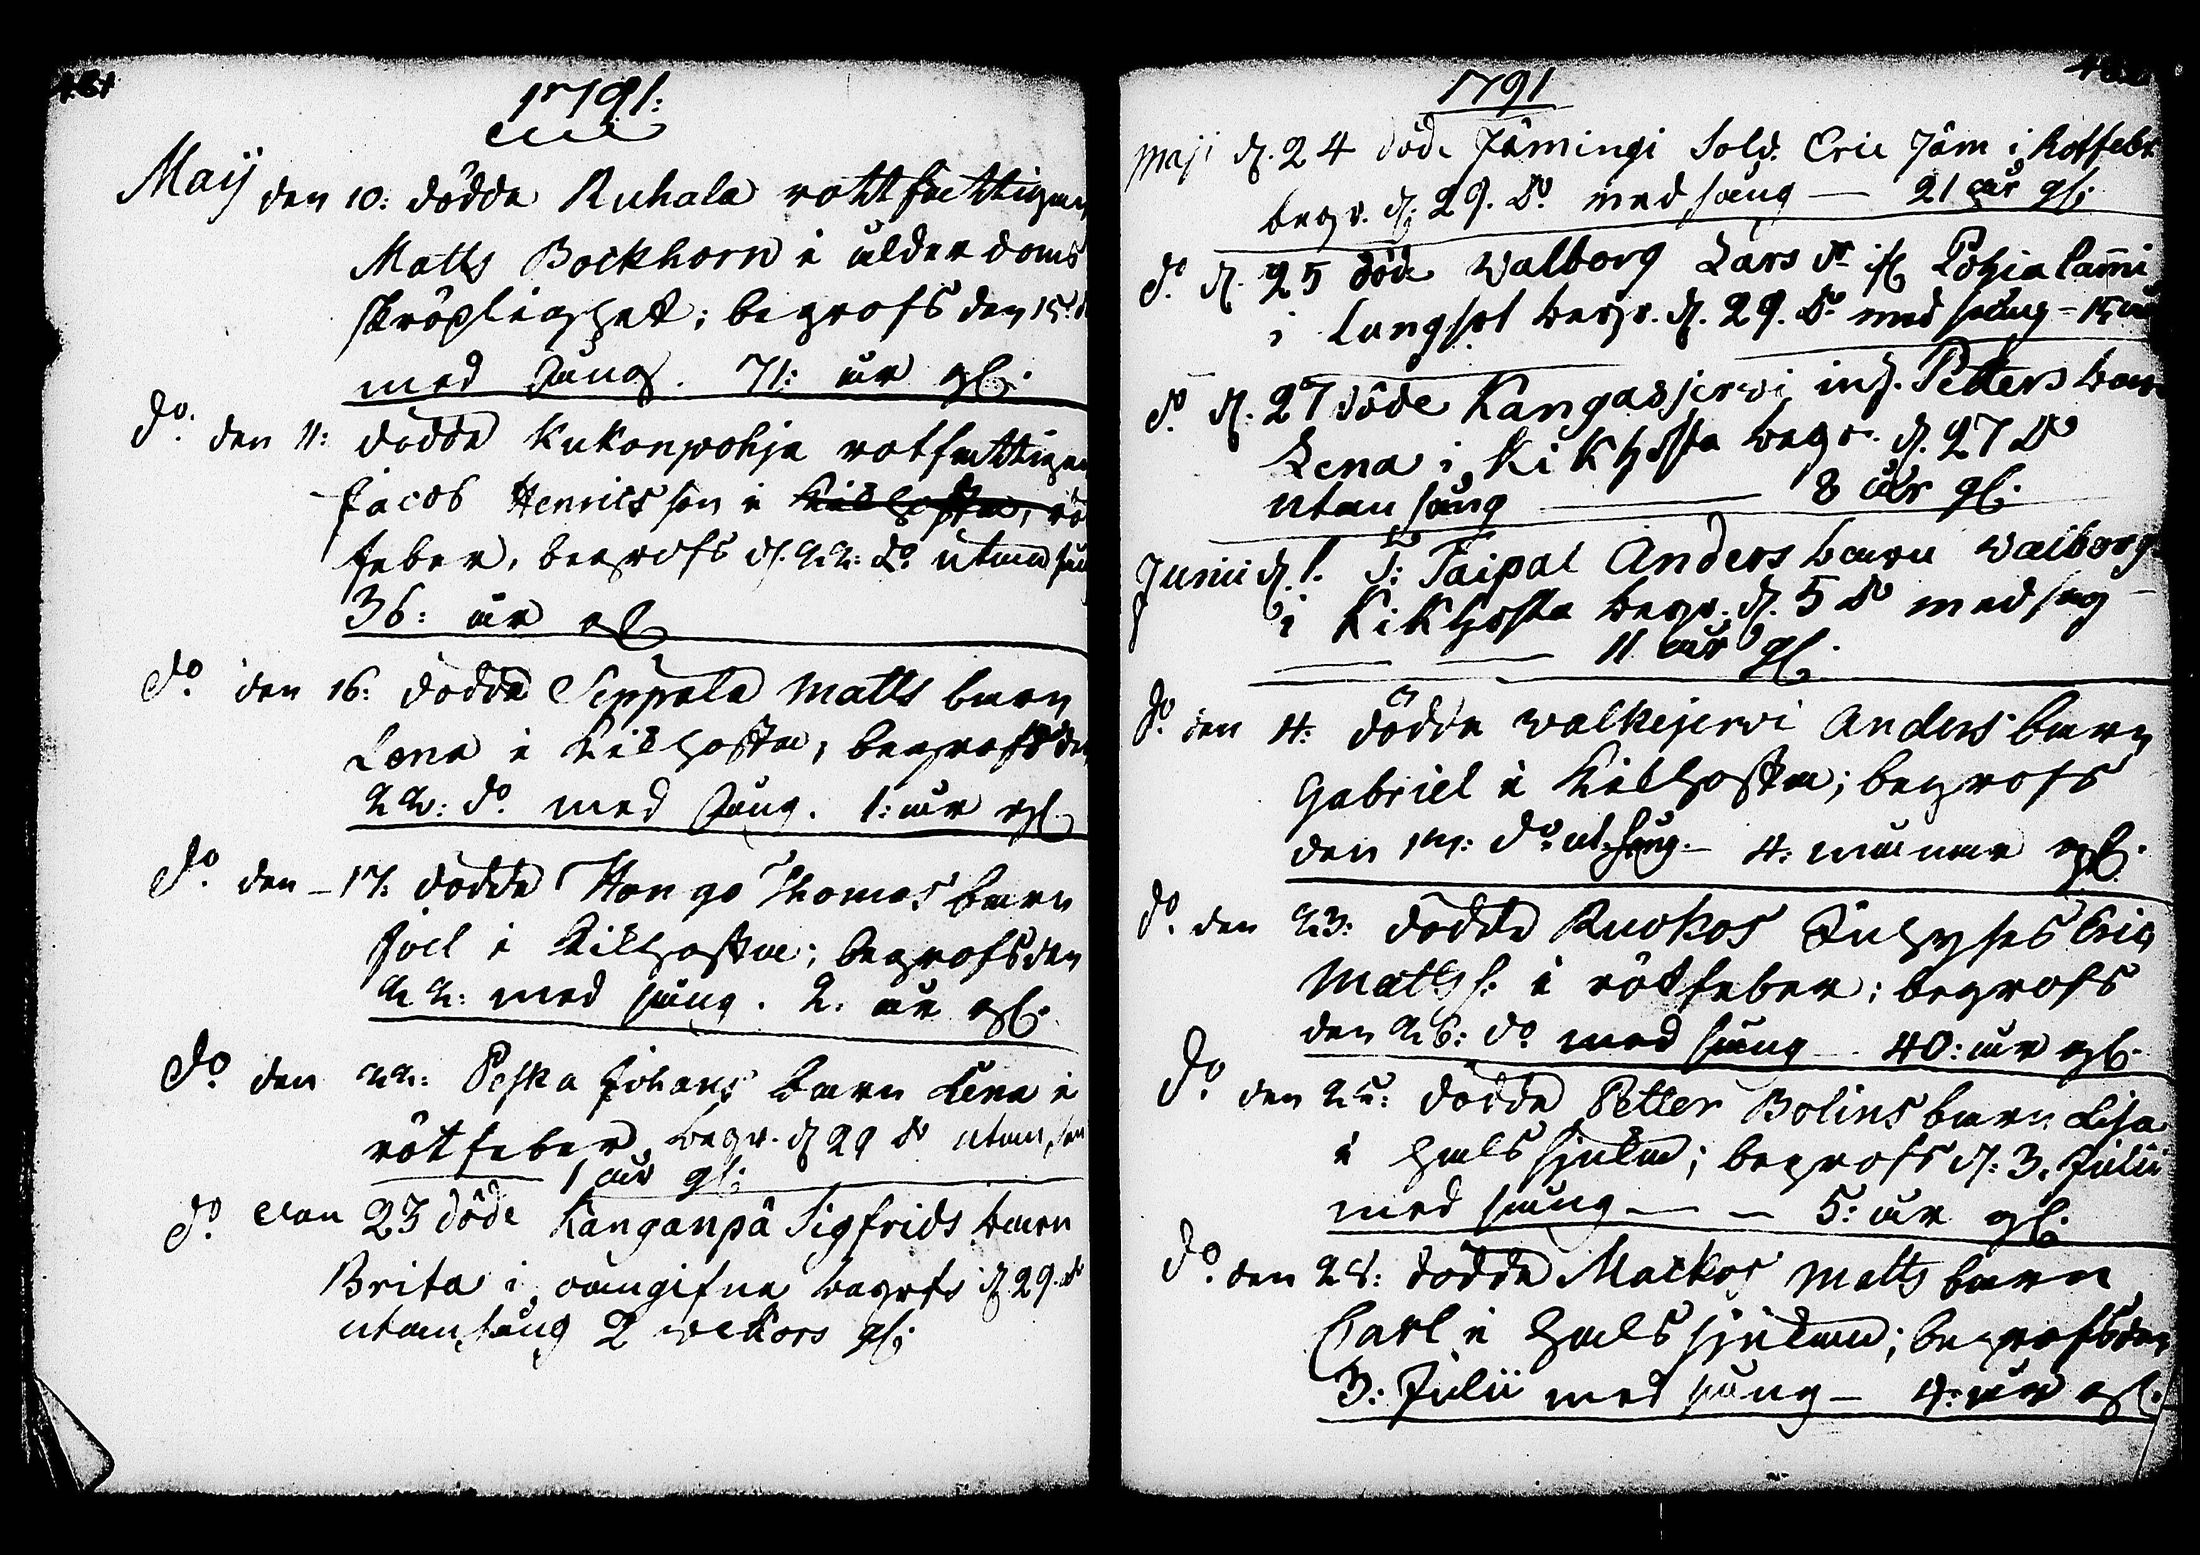 1791:
Maij den 10: dödde Ruhala rottfattigman
Matts Bockhorn i ålderdoms
skröplighet; begrofs den 15.
med sång. 71: år gl.
do. den 11: dödde Kukonpohja rotfattigen
Jacob Henricsson i Kikhosta, rö
feber, begrofs d. 22: do utan sån
36: år gl
do. den 16: dödde Seppälä Matts barn
Lena i Kikhosta; begrofs den
22: do. med sång. 1: år gl.
do. den 17: dödde Hongo Thomas barn
Joel i Kikhosta; begrofs den
22: med sång. 2: år gl.
do. den 22: Peska Johans barn Lena i
rötfeber begr. d 29 do utan sån
1 år gl:
do. dan 23 döde Kanganpä Sigfrids barn
Brita i oangifne begrfs d 29. do
utan sång 2 wekors gl.
1791
Maji d. 24 döde Jämingi Sold. Eric Jäm i Rotfeber
begr. d. 29. do med sång — 21 år gl:
do. d. 25 döde Walborg Lars dr Pohjalammi
i Lungsot begr. d. 29. do med sång - 15 år
do. d. 27 döde Kangasjerwi inh. Petters barn
Lena i Kikhosta begr. d. 27 do
utan sång — 8 år gl.
Junii d. 1. S: Taipal Anders barn Walborg
i Kikhosta begr. d. 5 do med sng
11 år gl.
do. den 4: dödde Walkejerwi Anders barn
Gabriel i Kikhosta; begrofs
den 14: do ut. sång. — 4: månar gl.
do. den 23: dödde Ruokos Inhyses Eric
Matts s: i rötfeber; begrofs
den 26: do med sång — 40: år gl.
do. den 25: dödde Petter Bolins barn Lisa
i halssjukan; begrofs d: 3. Julii
med sång — — 5: år gl.
do. den 28: dödde Mackos Matts barn
Carl i halssjukan; begrofs den
3: Julii med sång — 4: år gl.